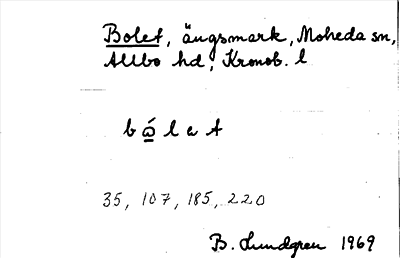 Bolet, ängsmark, Moheda sn,
Allbo hd, Kronob. l
bó̲let
35, 107, 185, 220
B. Lundgren 1969